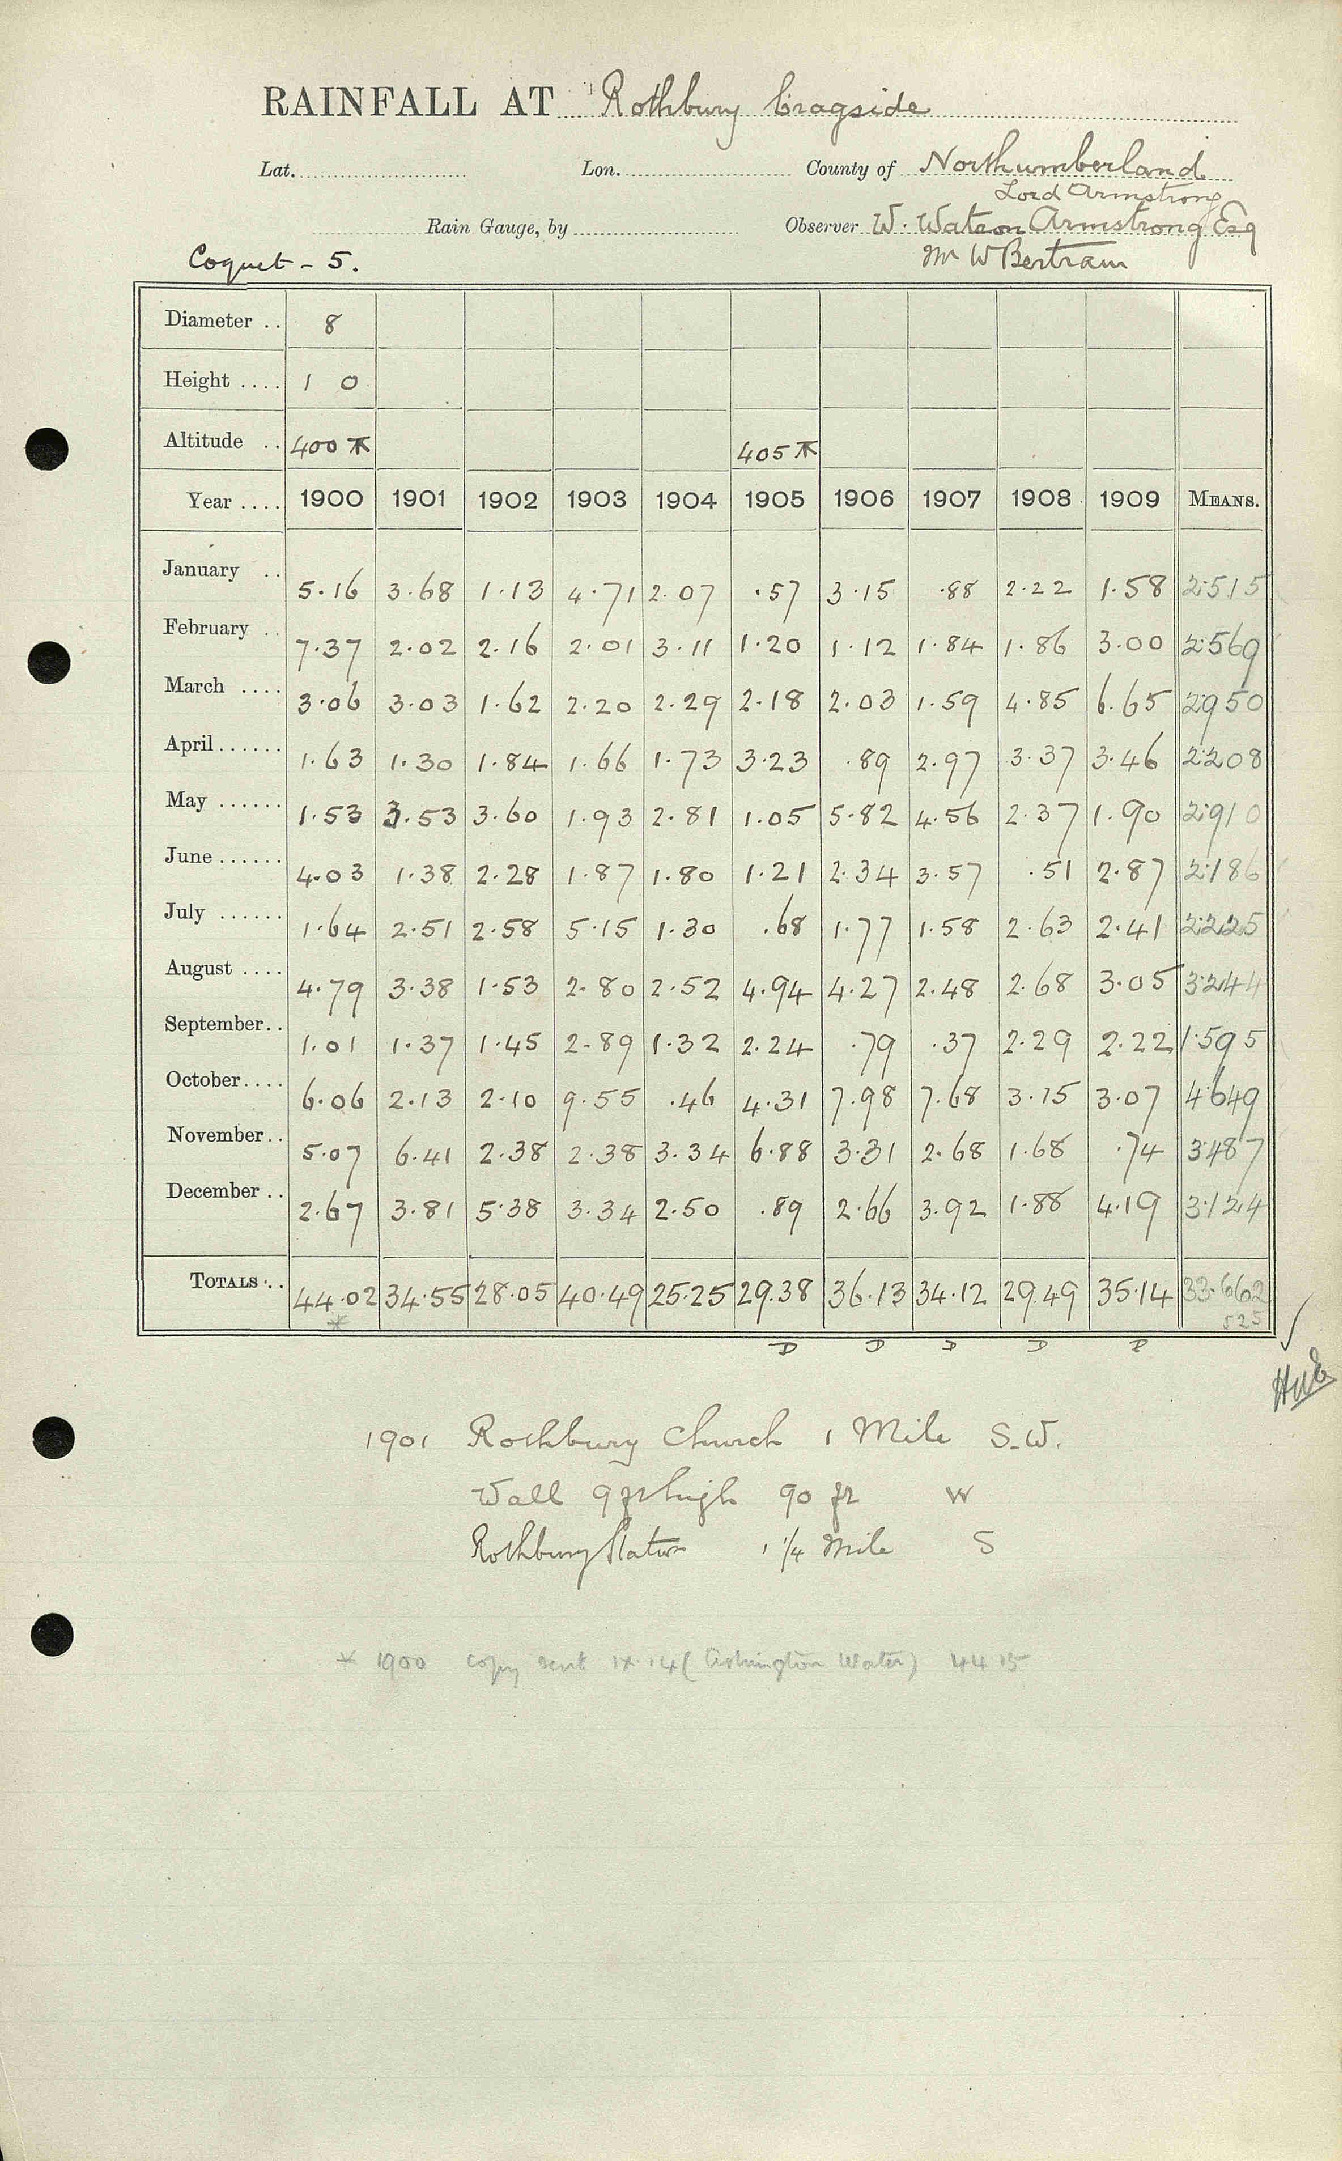 RAINFALL AT Rothbury Cragside
Lat. Lon. County of Northumberland
Lord Armstrong
Rain Gauge, by Observer W. Watson Armstrong Esq
Coquet - 5. Mr W Bertram
Diameter .. 8
Height .... 1 0
Altitude .. 400 405
Year .... 1900 1901 1902 1903 1904 1905 1906 1907 1908 1909 MEANS.
January .. 5.16 3.68 1.13 4.71 2.07 .57 3.15 .88 2.22 1.58 2.515
February .. 7.37 2.02 2.16 2.01 3.11 1.20 1.12 1.84 1.86 3.00 2.569
March .... 3.06 3.03 1.62 2.20 2.29 2.18 2.03 1.59 4.85 6.65 2.950
April...... 1.63 1.30 1.84 1.66 1.73 3.23 .89 2.97 3.37 3.46 2.208
May ...... 1.53 3.53 3.60 1.93 2.81 1.05 5.82 4.56 2.37 1.90 2.910
June ...... 4.03 1.38 2.28 1.87 1.80 1.21 2.34 3.57 .51 2.87 2.186
July ...... 1.64 2.51 2.58 5.15 1.30 .68 1.77 1.58 2.63 2.41 2.225
August .... 4.79 3.38 1.53 2.80 2.52 4.94 4.27 2.48 2.68 3.05 3.244
September.. 1.01 1.37 1.45 2.89 1.32 2.24 .79 .37 2.29 2.22 1.595
October.... 6.06 2.13 2.10 9.55 .46 4.31 7.98 7.68 3.15 3.07 4.649
November.. 5.07 6.41 2.38 2.38 3.34 6.88 3.31 2.68 1.68 .74 3.487
December .. 2.67 3.81 5.38 3.34 2.50 .89 2.66 3.92 1.88 4.19 3.124
TOTALS .. 44.02 34.55 28.05 40.49 25.25 29.38 36.13 34.12 29.49 35.14 33.662
* 525
D D D D D
1901 Rothbury Church 1 Mile S.W.
Wall 9 ft high 90 ft W
Rothbury Station 1 1/4 Mile S
* 1900 copy sent 14 (Ashington Water) 44 15